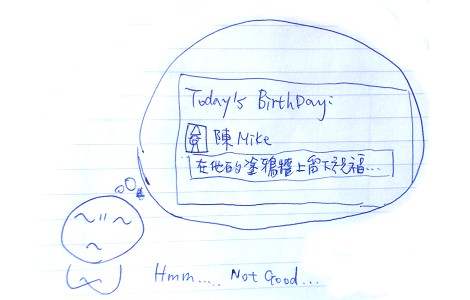 Today's BirthDay:
陳 Mike
在他的塗鴉牆上留下祝福...
Hmm..... Not Good...